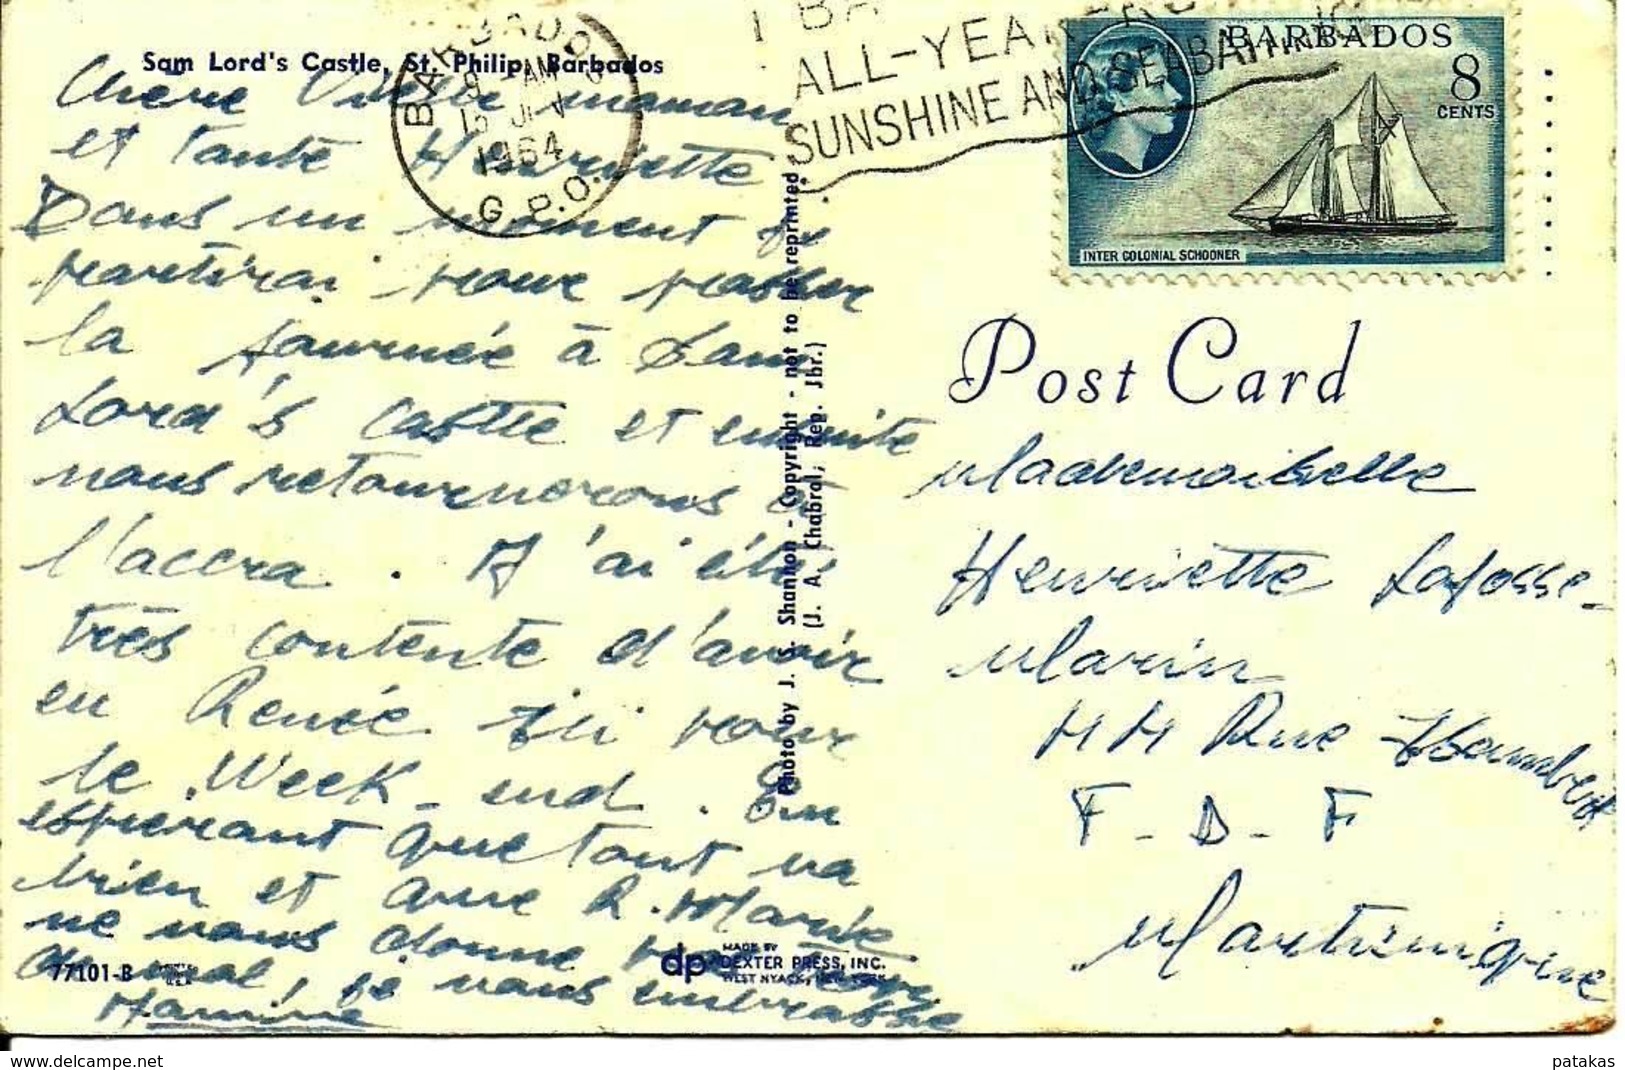 Sam Lord's Castle, St. Philip, Barbados
BARBADOS
AM
1964
G.P.O.
ALL-YEAR
SUNSHINE AND SEABATHING
BARBADOS
8
CENTS
INTER COLONIAL SCHOONER
Chère maman
et tante Henriette
Dans un moment je
partirai pour passer
la journée à Sam
Lord's Castle et ensuite
nous retournerons à
l'accra. J'ai été
très contente d'avoir
eu Renée ici pour
le Week-end. En
espérant que tout va
bien et que R. Marie
ne vous donne pas trop
de mal, je vous embrasse
Photo by J. S. Shannon - Copyright - not to be reprinted
(J. A. Chabrol, Rep. Jbr.)
Post Card
Mademoiselle
Henriette Lafosse-
Marin
44 Rue
F-D-F
Martinique
77101-B
dp
MADE BY
DEXTER PRESS, INC.
WEST NYACK, NEW YORK
patakas